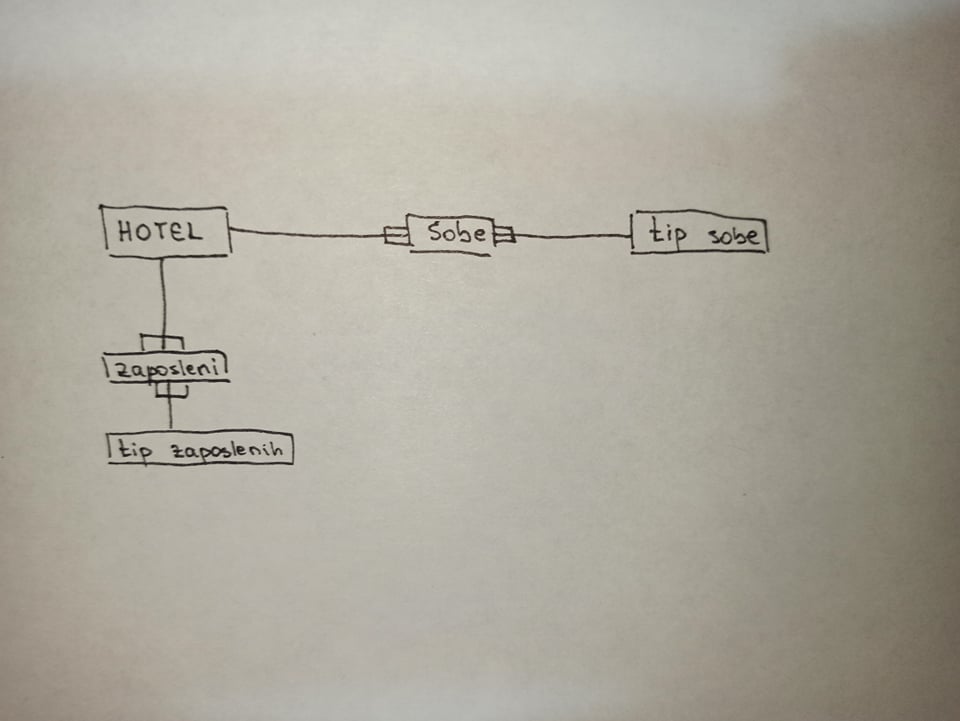 HOTEL
Sobe
tip sobe
zaposleni
tip zaposlenih